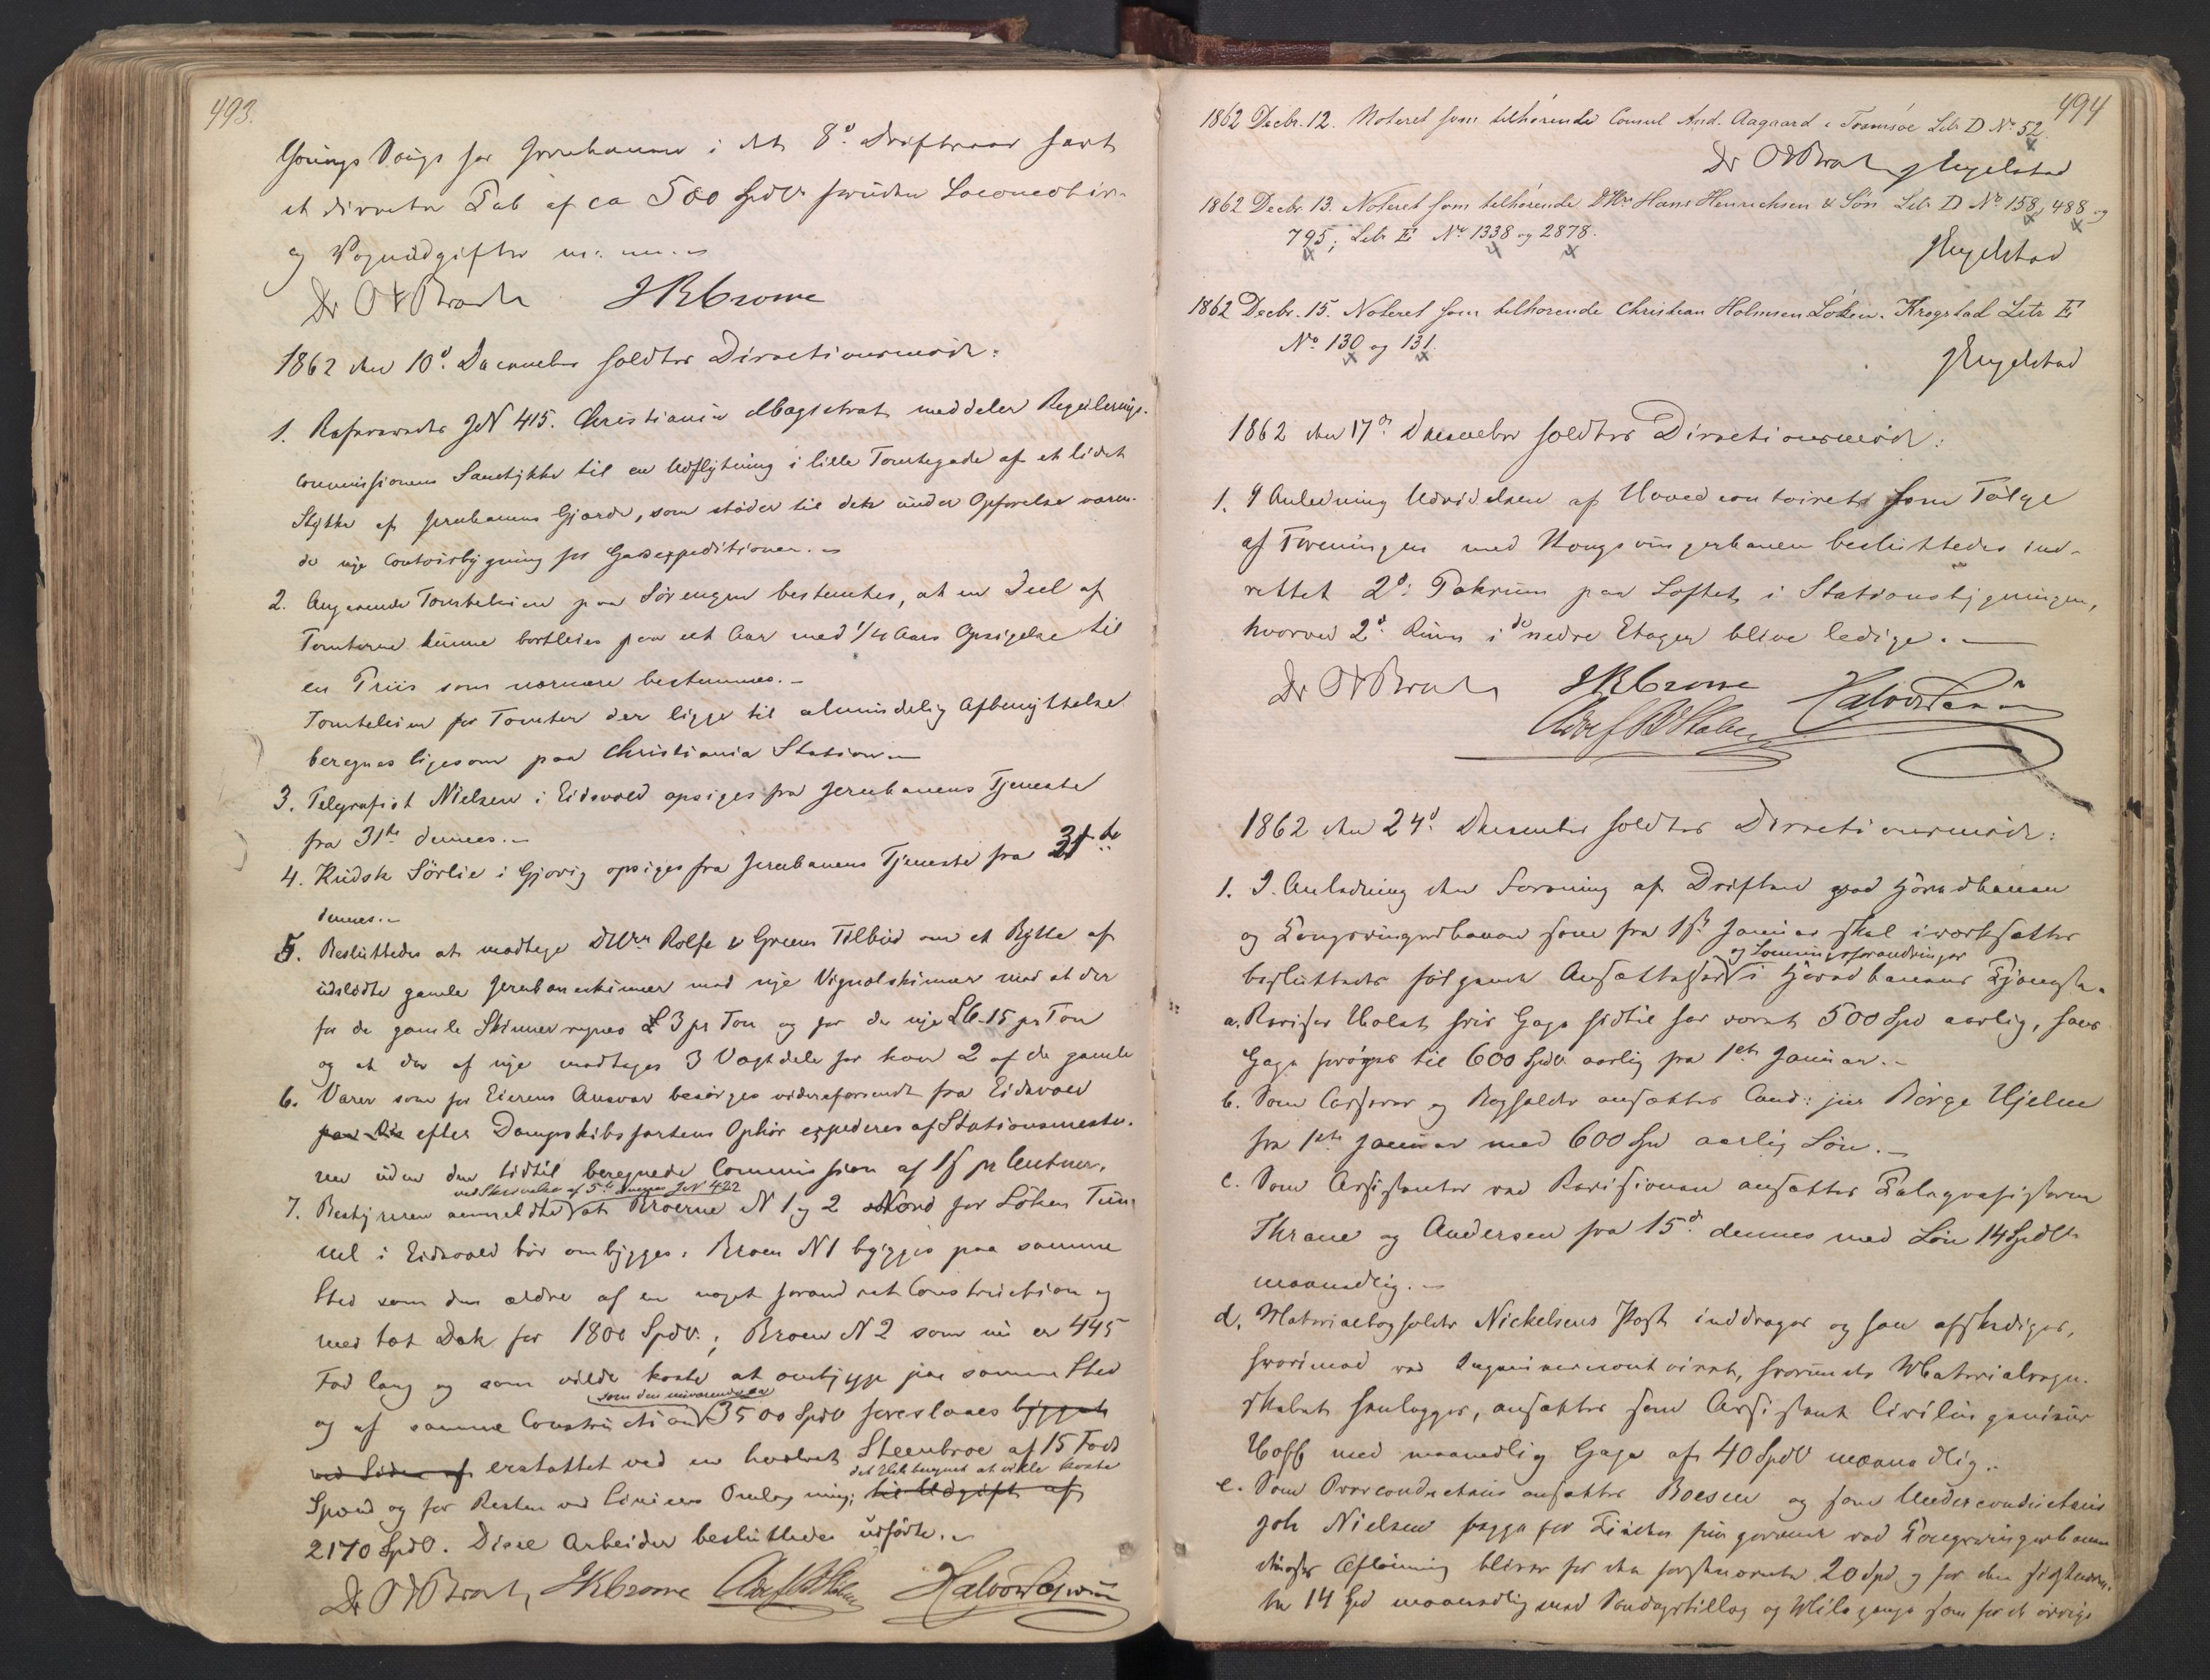 493.
Sørings Vaugs for Jernbanen i det 8de Driftsaar havt
et directe Tab af ca 500 Spdlr foruden Locomotiv-
og Vognudgifter m. m.
Dr O J Broch JRCrowe
1862 den 10d December holdtes Directionsmöde:
1. Refereredes JN 415. Christiania Magistrat meddeler Regulerings-
commissionens Samtykke til en Udflytning i lille Tomtegade af et lidet
Stykke af Jernbanens Gjærde, som støder til dets under Opförelse væren-
de nye Contoirbygning for Godsexpeditionen.
2. Angaaende Tomteleien paa Sörengen bestemtes, at en Deel af
Tomterne kunne bortleies paa eet Aar med 1/4 Aars Opsigelse til
en Priis som nærmere bestemmes.
Tomteleien for Tomter der ligge til almindelig Afbenyttelse
beregnes ligesom paa Christiania Station
3. Telegrafist Nielsen i Eidsvold opsiges fra Jernbanens Tjeneste
fra 31te dennes.
4. Kudsk Sörlie i Gjövig opsiges fra Jernbanens Tjeneste fra 31te
dennes.
5. Besluttedes at modtage DHrr Rolfe & Greens Tilbud om et Bytte af
udslidte gamle Jernbaneskinner mod nye Vignolskinner mod at der
for de gamle Skinner regnes £ 3 pr Ton og for de nye £6-15 pr Ton
og at der af nye modtages 3 Vægtdele for hver 2 af de gamle
6. Varer som for Eierens Ansvar besörges videreforsendt fra Eidsvold
efter Dampskibsfartens Ophör expederes af Stationsmeste-
ren uden den tidtil beregnede Commission af 1ß pr Centner.
ved Skrivelse af 5te dennes JN 422
7. Bestyreren anmeldte at Broerne N 1 og 2 Nord for Löken Tun-
nel i Eidsvold bör ombygges. Broen N 1 bygges paa samme
Sted som den ældre af en noget forandret Construction og
med tæt Dæk for 1800 Spdlr; Broen N 2 som nu er 445
Fod lang og som vilde koste at ombygge paa samme Sted
som den nuværende
og af samme Construction 3500 Spdlr foreslaaes bygget
ved Siden af erstattet ved en hvælvet Steenbroe af 15 Fods
det Hele beregnet at ville koste
Spænd og for Resten ved Liniens Omlægning; til Udgift af
2170 Spdlr. Disse Arbeider besluttedes udförte.
Dr O J Broch, JRCrowe
494
1862 Decbr. 12. Noteret som tilhörende Consul And. Aagaard i Tromsöe Litr D No 52
Dr O J Broch Engelstad
1862 Decbr 13. Noteret som tilhörende DHrr Hans Henrichsen & Sön Litr D No 158, 488 og
795; Litr E No 1338 og 2878.
Engelstad
1862 Decbr. 15. Noteret som tilhörende Christian Holmsen Löken. Krogstad Litr E
No 130 og 131.
Engelstad
1862 den 17d December holdtes Directionsmöde:
1. I Anledning Udvidelsen af Hovedcontoiret som Fölge
af Foreningen med Kongsvingerbanen besluttedes ind-
rettet 2de Pakrum paa Loftet i Stationsbygningen,
hvorved 2de Rum i de nedre Etager blive ledige.
Dr O J Broch JRCrowe
1862 den 24d December holdtes Directionsmöde:
1. I Anledning den Forening af Driften ved Hovedbanen
og Kongsvingerbanen som fra 1ste Januar skal iværksættes
og Lönningsforandringer
besluttedes fölgende Ansættelser i Hovedbanens Tjeneste.
a. Revisor Holst hvis Gage hidtil har været 500 Spd aarlig, faaer
Gage foröget til 600 Spdlr aarlig fra 1ste Januar.
b. Som Casserer og Bogholder ansættes Cand: jur Börge Hjelm
fra 1ste Januar med 600 Spd aarlig Lön.
c. Som Assistenter ved Revisionen ansættes Telegrafisterne
Thrane og Andersen fra 15d dennes med Lön 14 Spdlr
maanedlig.
d. Materialbogholder Nickelsens Post inddrages og han afskediges,
hvorimod ved Ingenieurcontoiret, hvorunder Materialregn-
skabet henlægges, ansættes som Assistent Civilingenieur
Hoff med maanedlig Gage af 40 Spdlr maanedlig.
e. Som Overconducteur ansættes Boesen og som Underconducteur
Joh Nielsen begge for Tiden fungerende ved Kongsvingerbanen
disses Aflönning bliver for den förstnævnte 20 Spd og for den sidstnævn-
te 14 Spd maanedlig med Söndagstillæg og Milepenge som for de övrige